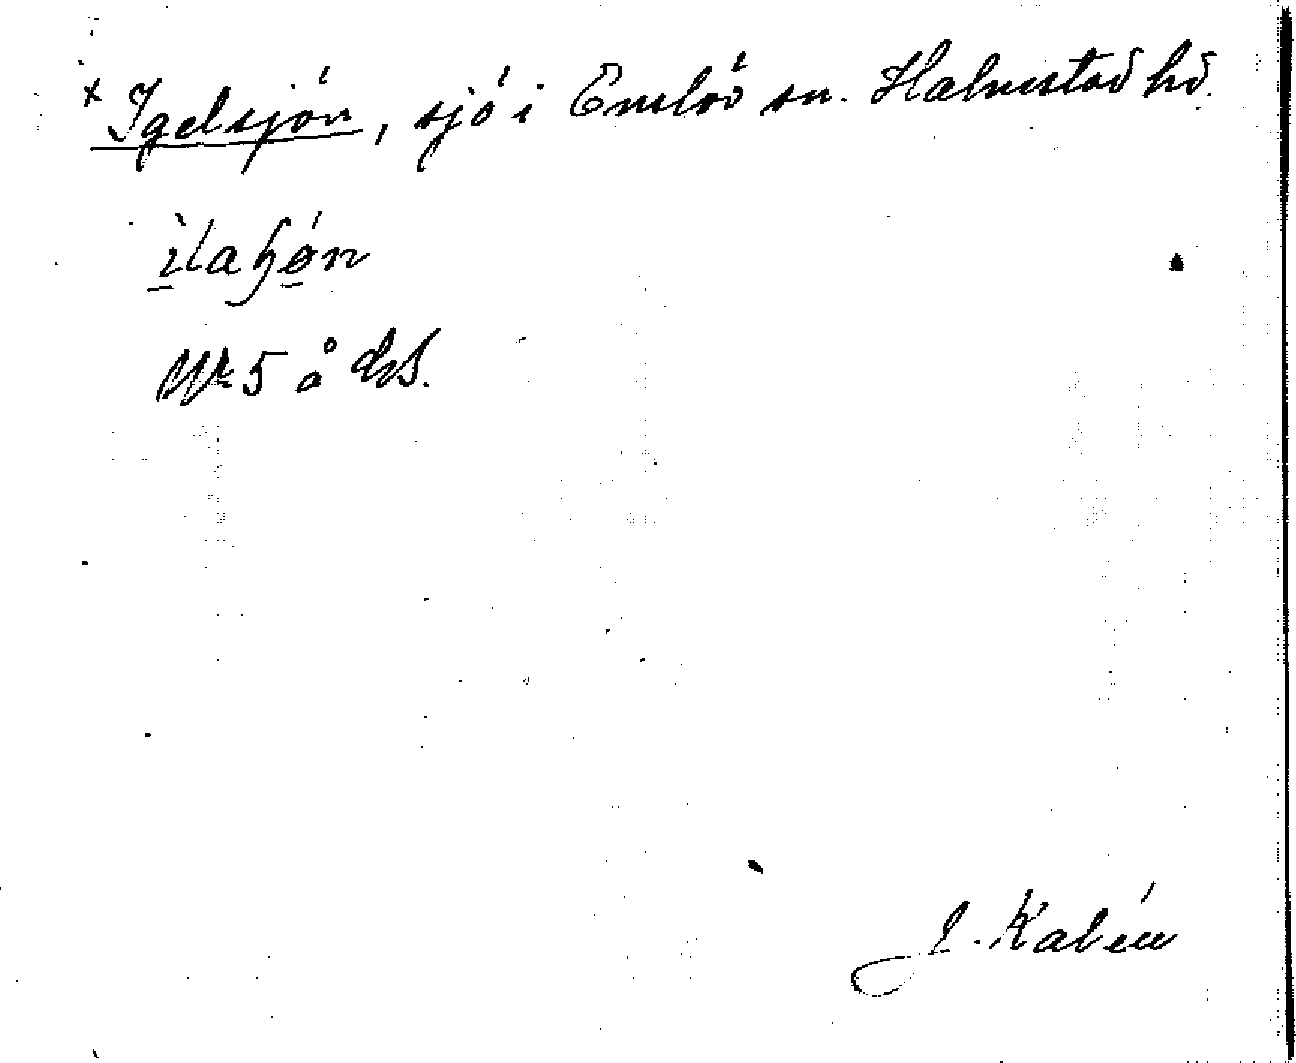 x Igelsjön, sjö i Enslöv sn. Halmstad hd.
ìlaɧǿn
Nr 5 å EB.
J. Kalén